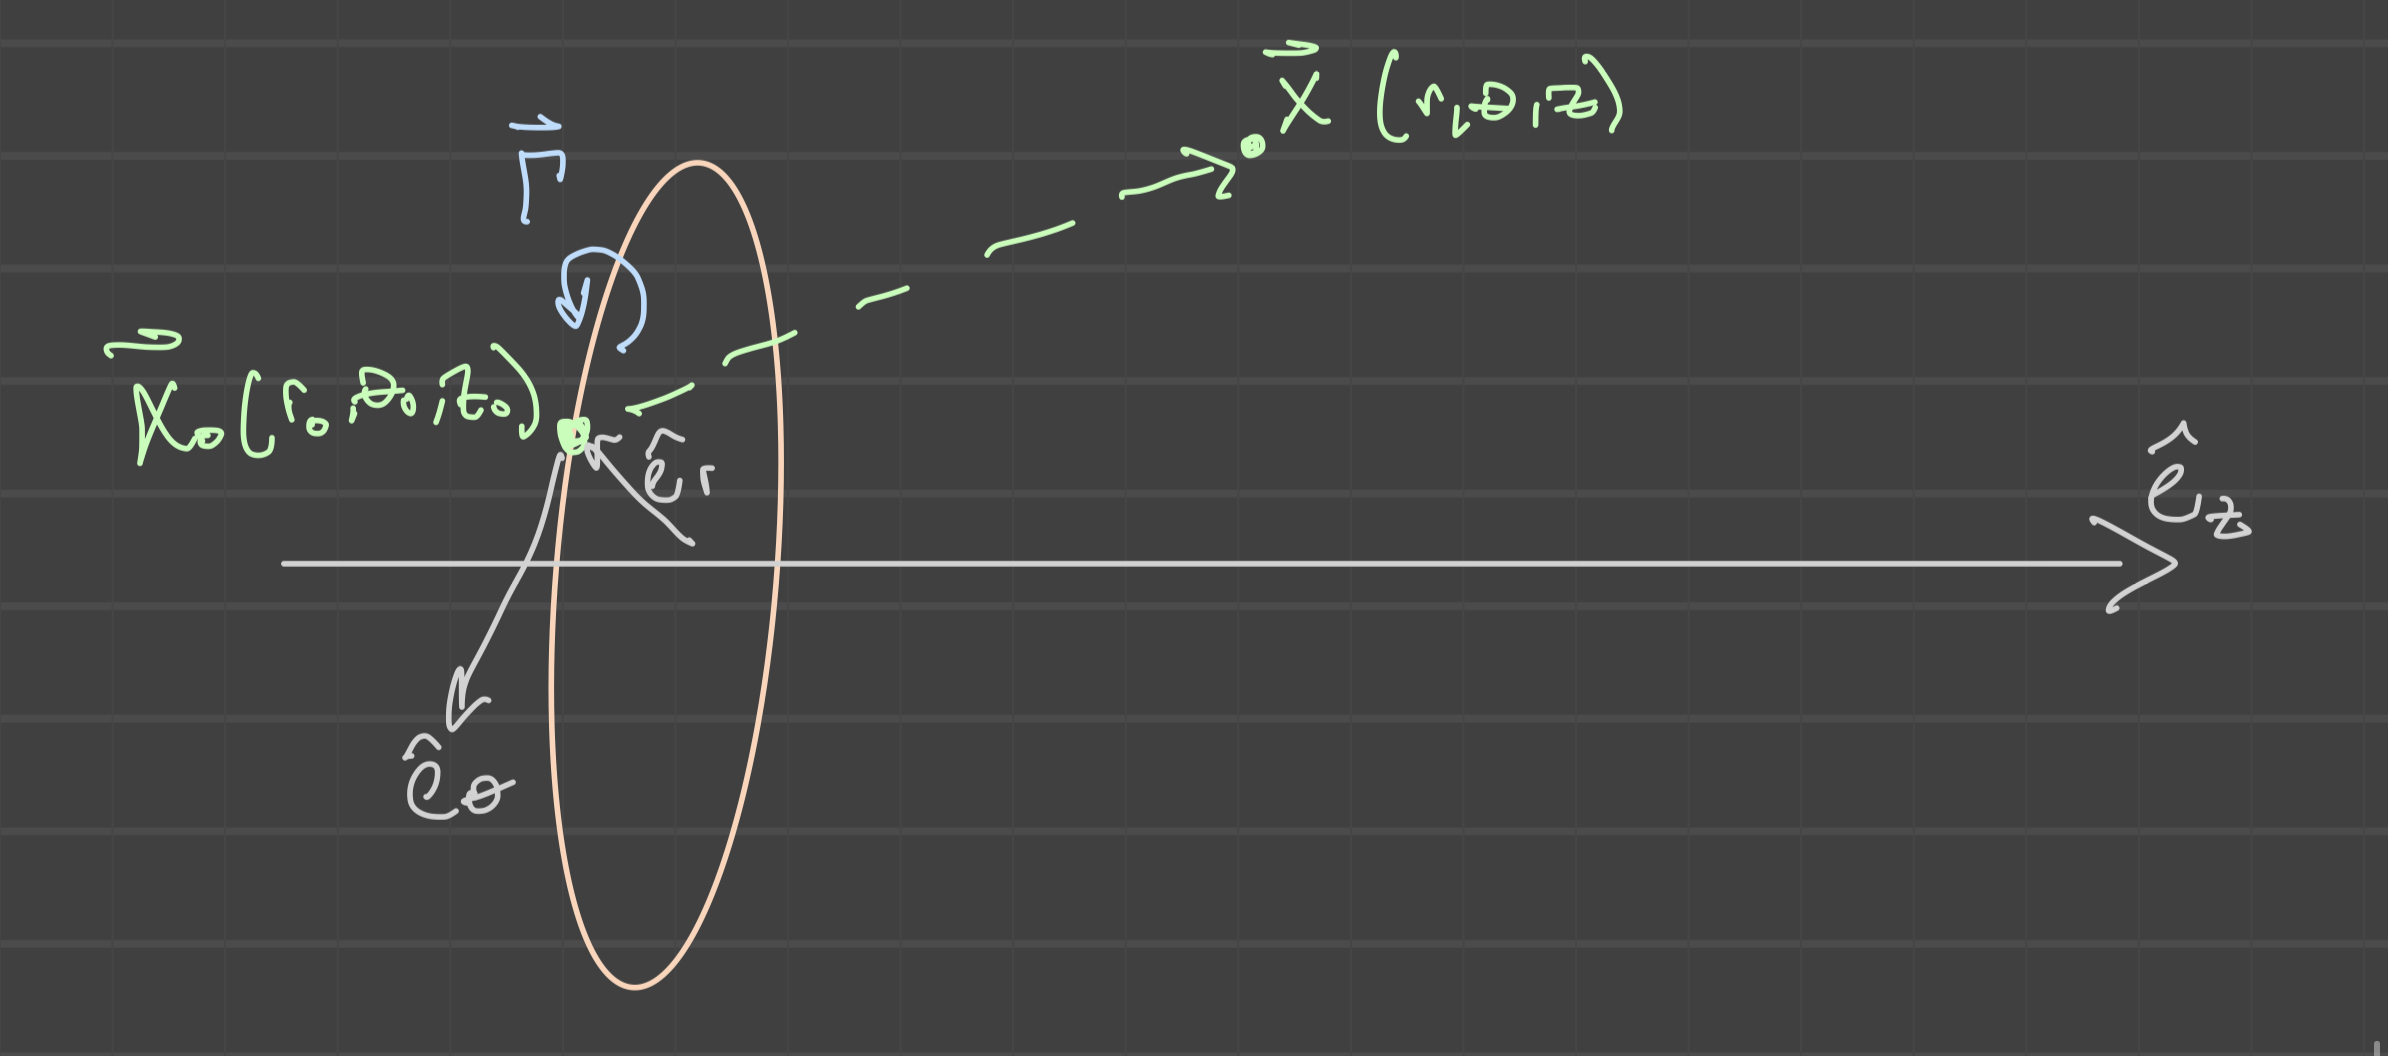 x⃗ (r,θ,z)
Γ⃗
x⃗₀(r₀,θ₀,z₀)
ê_r
ê_z
ê_θ